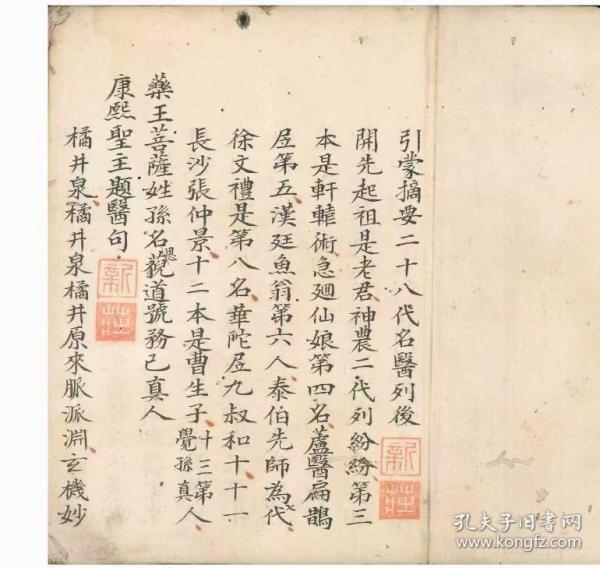 引蒙摘要二十八代名醫列後
開先起祖是老君神農二代列紛紛第三
本是軒轅術急廻仙娘第四名蘆醫扁鵲
居第五漢廷魚翁第六人泰伯先師為代
徐文禮是第八名華陀居九叔和十十一
長沙張仲景十二本是曹生子十三第覺孫真人
藥王菩薩姓孫名藐思道號務已真人
康熙聖主題醫句
橘井泉橘井泉橘井原來脈派淵玄機妙
新莊
新莊
孔夫子旧书网
www.kongfz.com